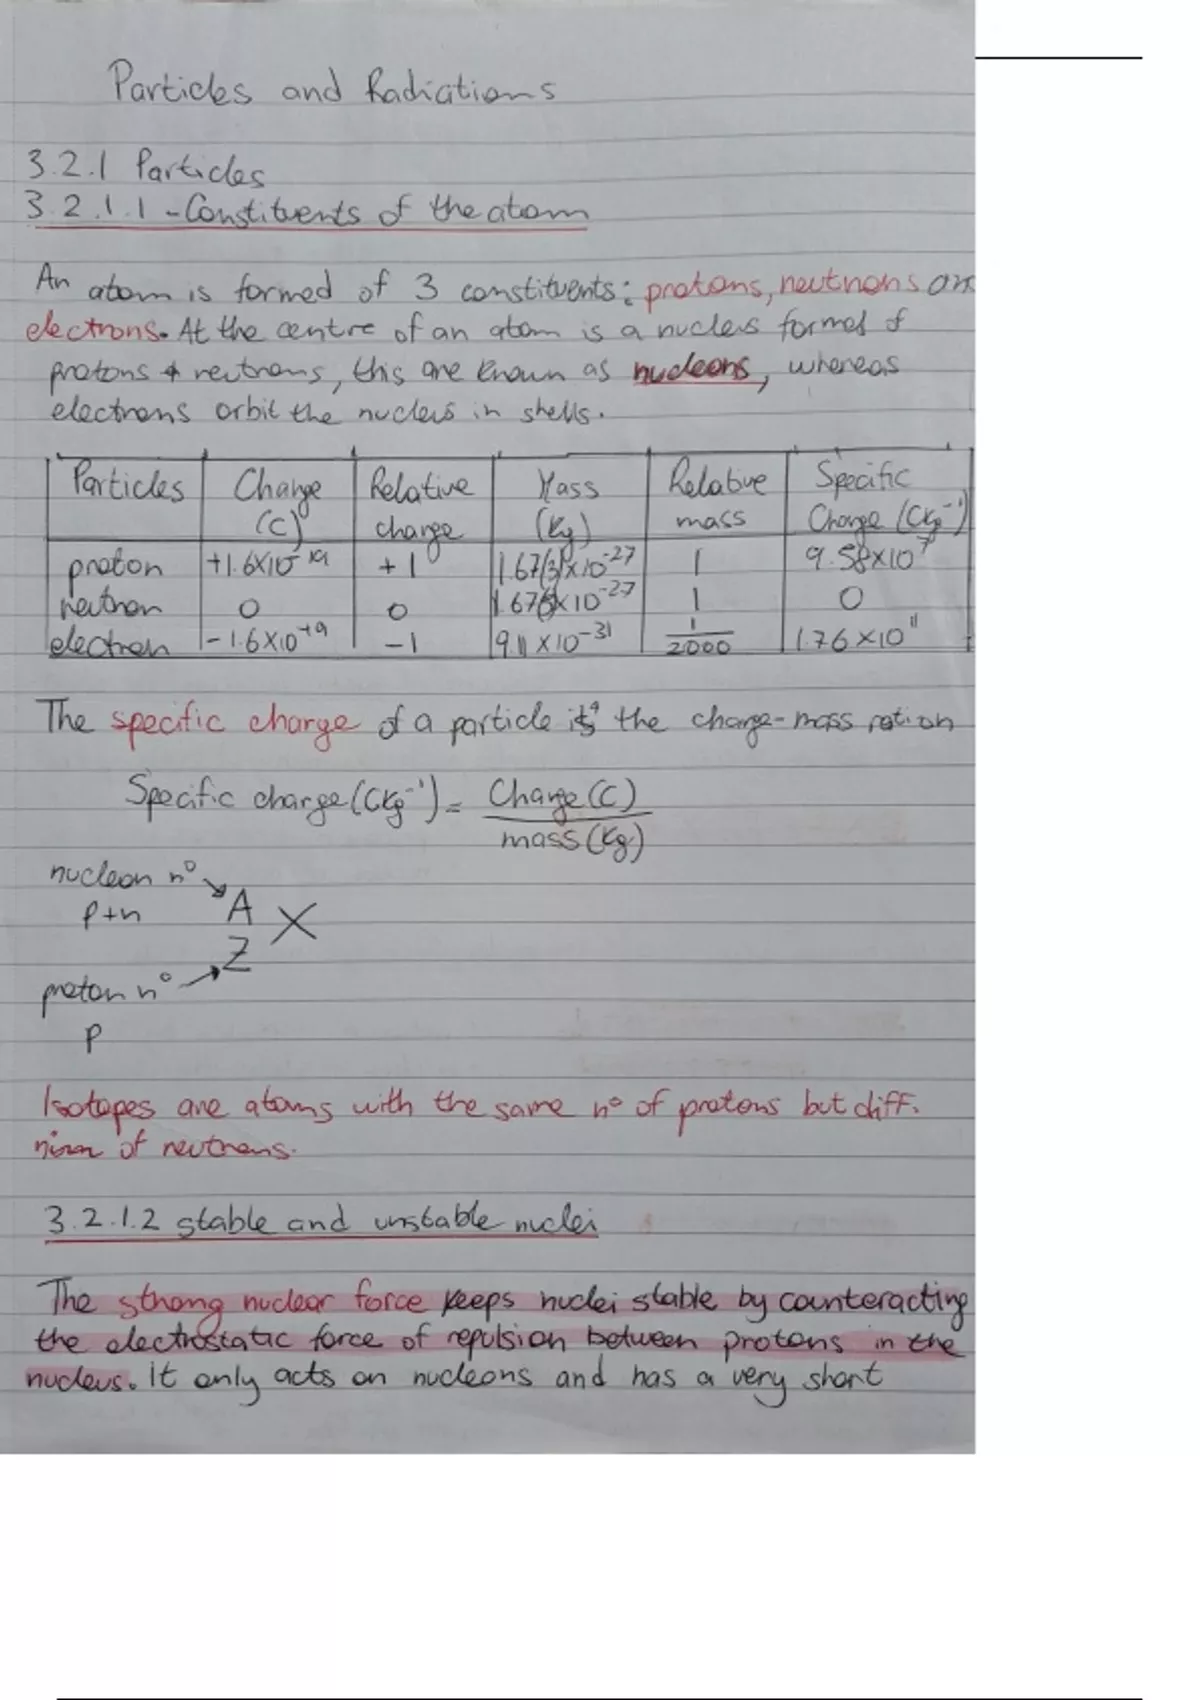 Particles and Radiations
3.2.1 Particles
3.2.1.1 - Constituents of the atom
An atom is formed of 3 constituents: protons, neutrons an
electrons. At the centre of an atom is a nucleus formed of
protons & neutrons, this are known as nucleons, whereas
electrons orbit the nucleus in shells.
Particles Charge (C) Relative charge Mass (Kg) Relative mass Specific Charge (CKg⁻¹)
proton +1.6×10⁻¹⁹ +1 1.67(3)×10⁻²⁷ 1 9.58×10⁷
neutron 0 0 1.675×10⁻²⁷ 1 0
electron -1.6×10⁻¹⁹ -1 9.11×10⁻³¹ 1/2000 1.76×10¹¹
The specific charge of a particle is the charge-mass ration
Specific charge (CKg⁻¹) = Charge (C)
mass (Kg)
nucleon nº
p+n A X
Z
proton nº
p
Isotopes are atoms with the same nº of protons but diff.
of neutrons.
3.2.1.2 stable and unstable nuclei
The strong nuclear force keeps nuclei stable by counteracting
the electrostatic force of repulsion between protons in the
nucleus. It only acts on nucleons and has a very short